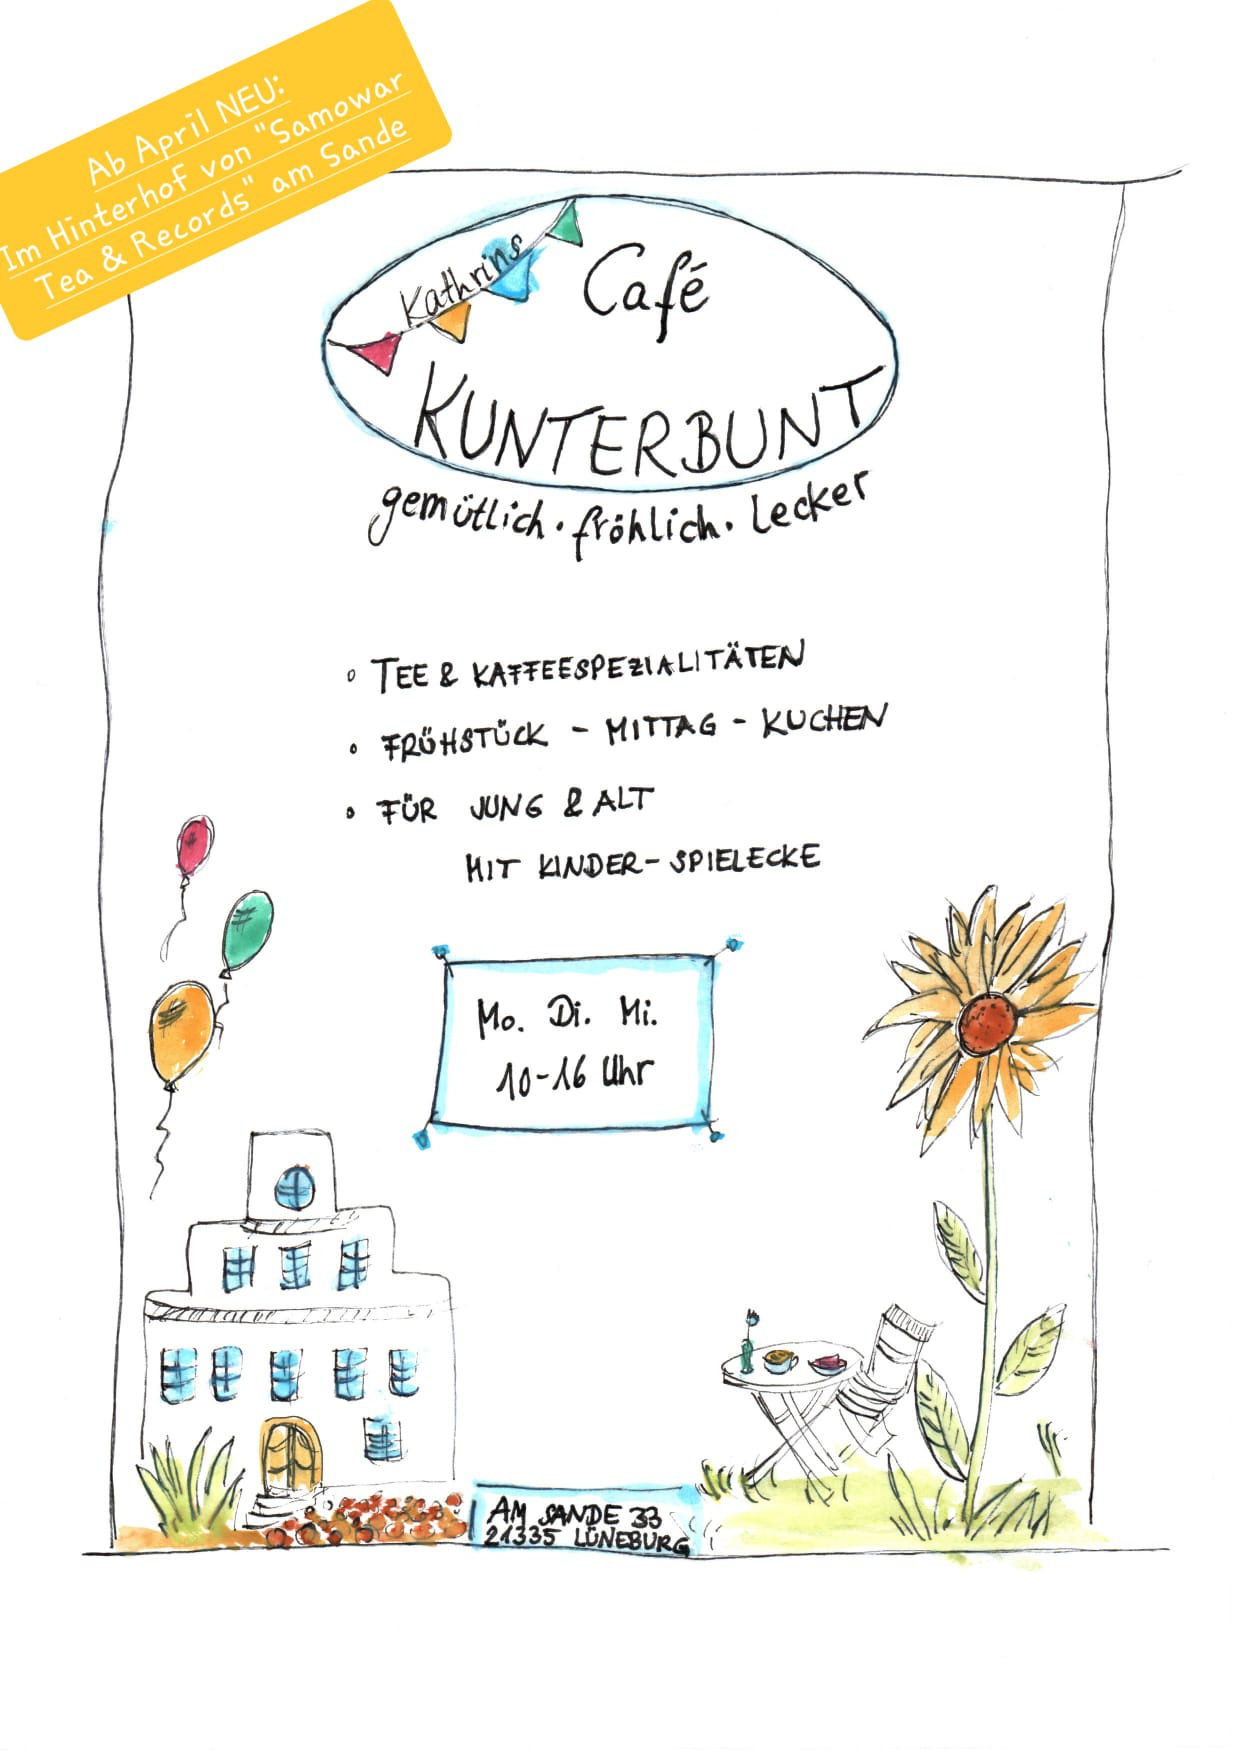 Ab April NEU:
Im Hinterhof von "Samowar
Tea & Records" am Sande
Kathrins
Café
KUNTERBUNT
gemütlich · fröhlich · lecker
° TEE & KAFFEESPEZIALITÄTEN
° FRÜHSTÜCK - MITTAG - KUCHEN
° FÜR JUNG & ALT
MIT KINDER-SPIELECKE
Mo. Di. Mi.
10-16 Uhr
AM SANDE 33
21335 LÜNEBURG